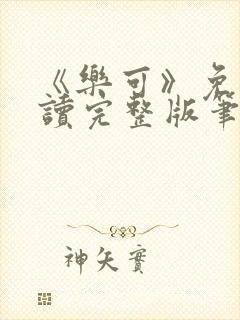 《樂可》免
讀完整版筆
神矢實